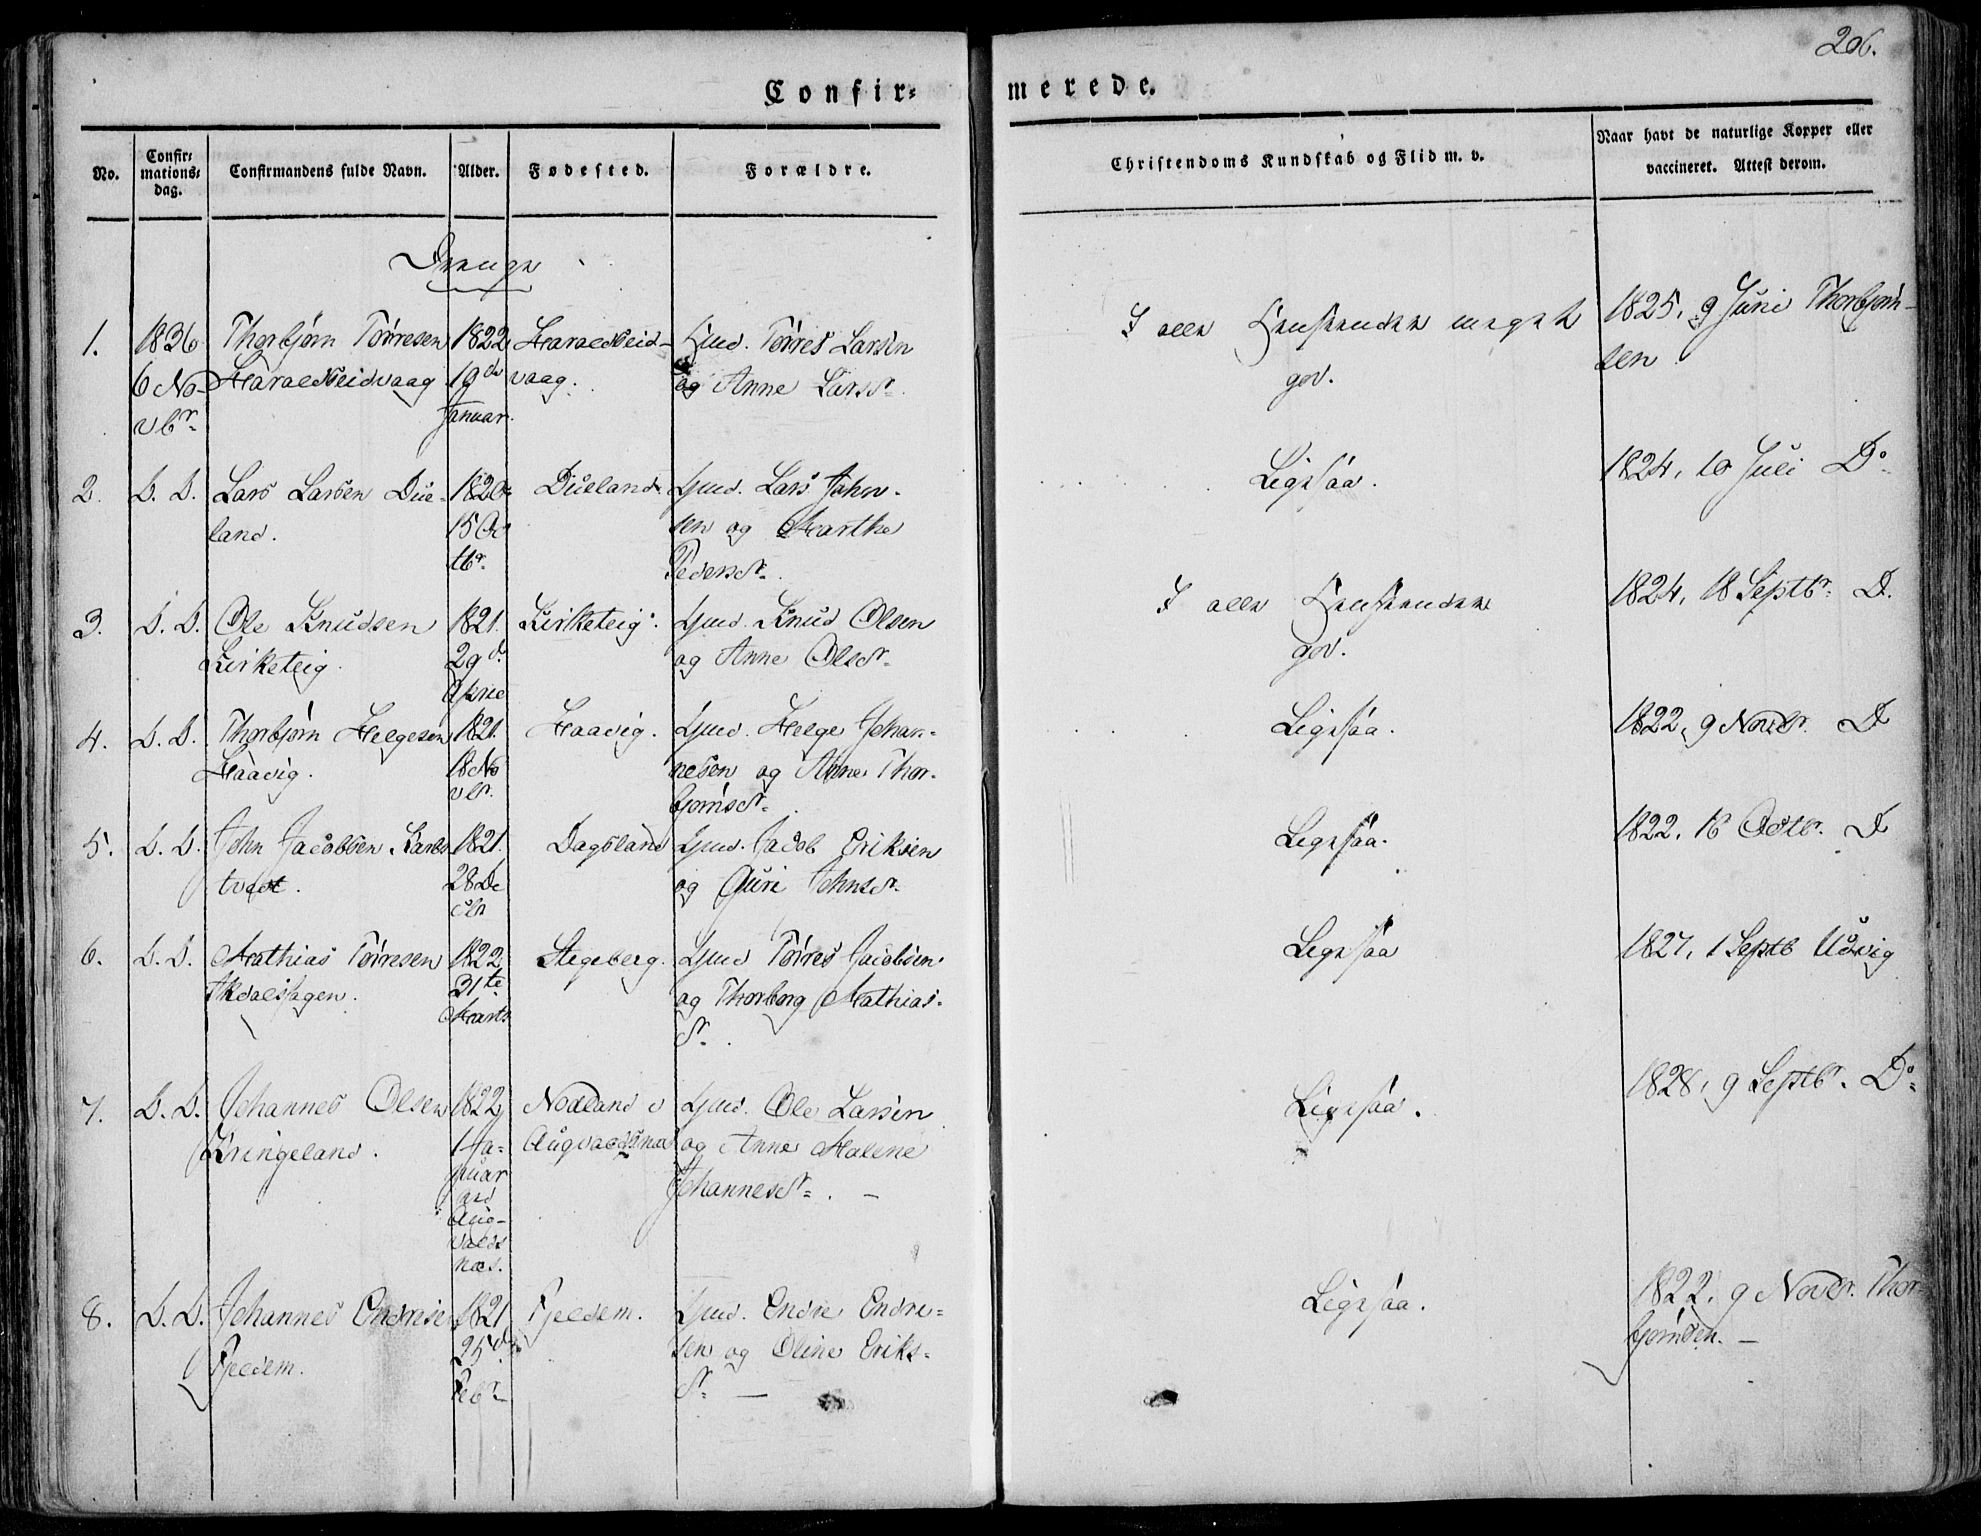 206.
Confir-
merede.
No.
Confir-
mations-
dag.
Confirmandens fulde Navn.
Alder.
Fødested.
Forældre.
Christendoms Kundskab og Flid m. v.
Naar havt de naturlige Kopper eller
vaccineret. Attest derom.
Drenge
1.
1836
6 No-
vbr.
Thorbjørn Tørresen
Haraldseidvaag
1822
19de
Januar.
Haraldseid-
vaag.
Gmd. Tørres Larsen
og Anne Larsdr.
I alle Henseender meget
god.
1825, 9 Juni Thorbjørn-
sen
2.
D. D.
Lars Larsen Due-
land.
1820
15 Oc
tbr.
Dueland
Gmd. Lars John-
sen og Martha
Pedersdr.
Ligesaa.
1824, 10 Juli Do.
3.
D. D.
Ole Knudsen
Kirketeig.
1821.
29d.
April
Kirketeig.
Gmd. Knud Olsen
og Anne Olsdr.
I alle Henseender
god.
1824, 18 Septbr. D.
4.
D. D.
Thorbjørn Helgesen
Haavig.
1821.
18 No
vbr.
Haavig.
Gmd. Helge Johan-
nesen og Anne Thor-
bjørnsdr.
Ligesaa.
1822, 9 Novbr. D
5.
D. D.
John Jacobsen
tvedt.
1821.
28 De
cbr
Dagsland
Gmd. Jacob Eriksen
og Guri Johnsdr.
Ligesaa.
1822, 16 Octbr. D
6.
D. D.
Mathias Tørresen
1822
31te
Marts
Stegeberg.
Gmd Tørres Jacobsen
og Thorborg Mathias-
dr.
Ligesaa
1827, 1 Septb Udvig
7.
D. D.
Johannes Olsen
Kringeland.
1822
1 Ja-
nuar
Aug-
valds
næs.
Nodland i
Augvaldsnæs
Gmd. Ole Larsen
og Anne Malene
Johannesdr. —
Ligesaa.
1828, 9 Septbr. Do.
8.
D. D.
Johannes Endresen
Fjeldem.
1821
25de
Febr.
Fjeldem.
Gmd. Endre Endre-
sen og Oline Eriks-
dr. —
Ligesaa.
1822, 9 Novbr. Thor-
bjørnsen. —